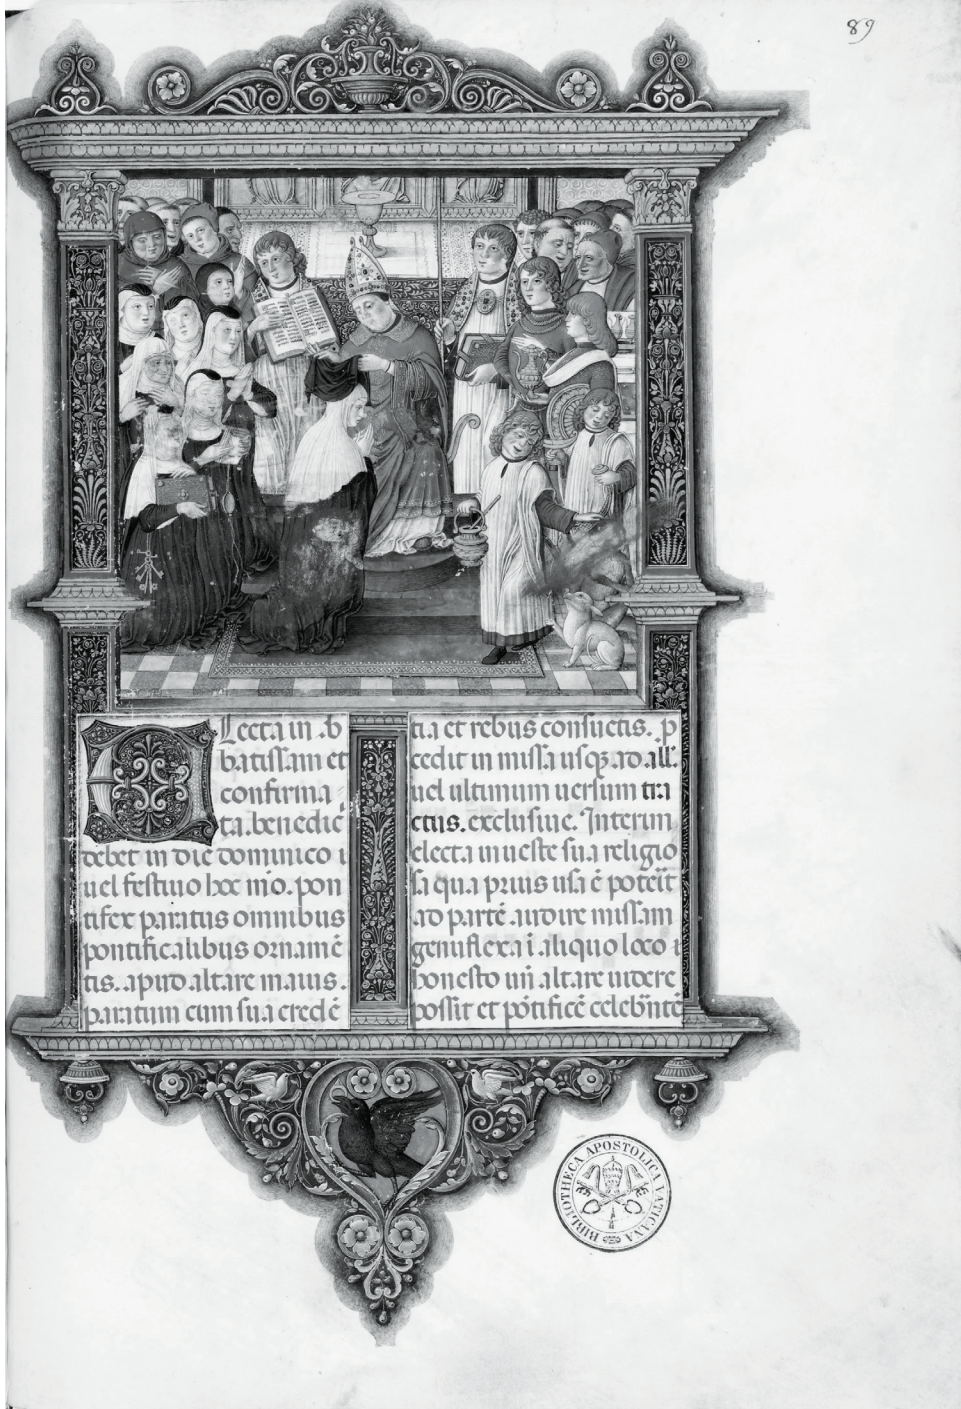 89
Electa in .b
batissam et
confirma
ta. benedic̄
debet in die dominico i
uel festiuo hoc mo̅. pon
tifex paratus omnibus
pontificalibus ornamē
tis. apud altare maius.
paratum cum sua credē
tia et rebus consuetis. p
cedit in missa usq; ad all'.
uel ultimum uersum tra
ctus. exclusiue. Interim
electa in ueste sua religio
sa qua prius usa ē poterit
ad partē audire missam
genuflexa ī aliquo loco i
honesto uñ altare uidere
possit et pōtificē celebrātē
BIBLIOTHECA APOSTOLICA VATICANA